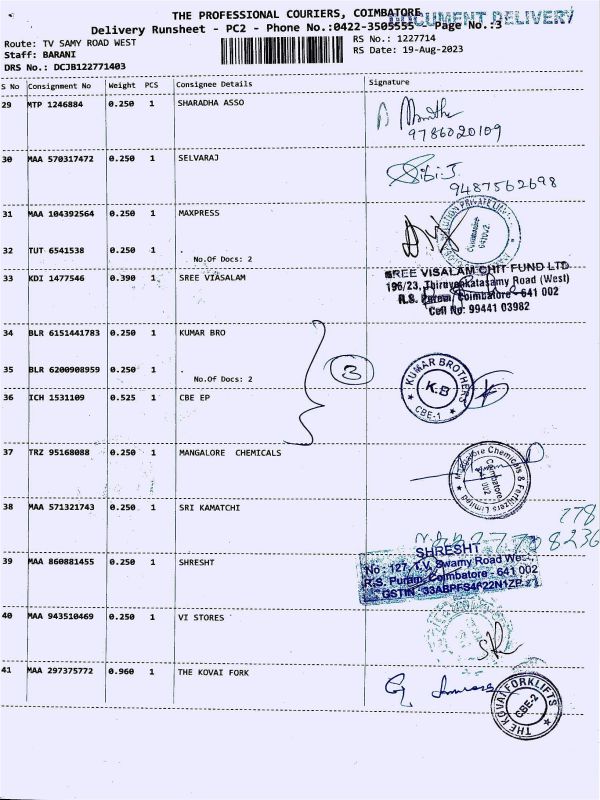 THE PROFESSIONAL COURIERS, COIMBATORE
DOCUMENT DELIVERY
Delivery Runsheet - PC2 - Phone No.:0422-3505555 Page No.:3
Route: TV SAMY ROAD WEST
RS No.: 1227714
Staff: BARANI
RS Date: 19-Aug-2023
DRS No.: DCJB122771403
S No Consignment No Weight PCS Consignee Details Signature
29 MTP 1246884 0.250 1 SHARADHA ASSO
9786020109
30 MAA 570317472 0.250 1 SELVARAJ
9487562698
31 MAA 104392564 0.250 1 MAXPRESS
32 TUT 6541538 0.250 1 .
No.Of Docs: 2
33 KDI 1477546 0.390 1 SREE VIASALAM
SREE VISALAM CHIT FUND LTD
196/23, Thiruvenkatasamy Road (West)
R.S. Puram, Coimbatore - 641 002
Cell No: 99441 03982
34 BLR 6151441783 0.250 1 KUMAR BRO
35 BLR 6200908959 0.250 1 .
No.Of Docs: 2
3
KUMAR BROTHERS
K.B
CBE-1
36 ICH 1531109 0.525 1 CBE EP
37 TRZ 95168088 0.250 1 MANGALORE CHEMICALS
Mangalore Chemicals & Fertilizers Limited
Coimbatore
002
38 MAA 571321743 0.250 1 SRI KAMATCHI
39 MAA 860881455 0.250 1 SHRESHT
SHRESHT
No : 127, T.V. Swamy Road West,
R.S. Puram, Coimbatore - 641 002
40 MAA 943510469 0.250 1 VI STORES
41 MAA 297375772 0.960 1 THE KOVAI FORK
THE KOVAI FORKLIFTS
CBE-2